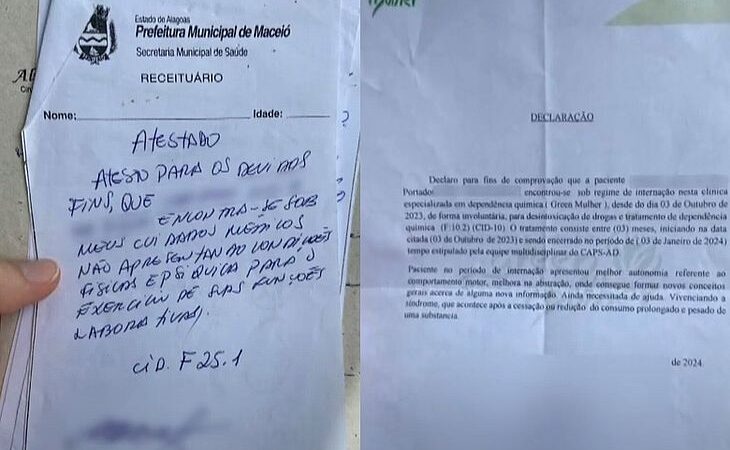 Estado de Alagoas
Prefeitura Municipal de Maceió
Secretaria Municipal de Saúde
RECEITUÁRIO
Nome: Idade:
ATESTADO
ATESTO PARA OS DEVIDOS
FINS, QUE
ENCONTRA-SE SOB
MEUS CUIDADOS MÉDICOS
NÃO APRESENTANDO CONDIÇÕES
FÍSICAS E PSÍQUICA PARA O
EXERCÍCIO DE SUAS FUNÇÕES
LABORATIVAS.
CID. F 25.1
DECLARAÇÃO
Declaro para fins de comprovação que a paciente
Portado encontrou-se sob regime de internação nesta clínica
especializada em dependência química ( Green Mulher ), desde do dia 03 de Outubro de
2023, de forma involuntária, para desintoxicação de drogas e tratamento de dependência
química (F:10.2) (CID-10). O tratamento consiste entre (03) meses, iniciando na data
citada (03 de Outubro de 2023) e sendo encerrado no período de ( 03 de Janeiro de 2024)
tempo estipulado pela equipe multidisciplinar do CAPS-AD.
Paciente no período de internação apresentou melhor autonomia referente ao
comportamento motor, melhora na abstração, onde consegue formar novos conceitos
gerais acerca de alguma nova informação. Ainda necessitada de ajuda. Vivenciando a
síndrome, que acontece após a cessação ou redução do consumo prolongado e pesado de
uma substancia.
de 2024.